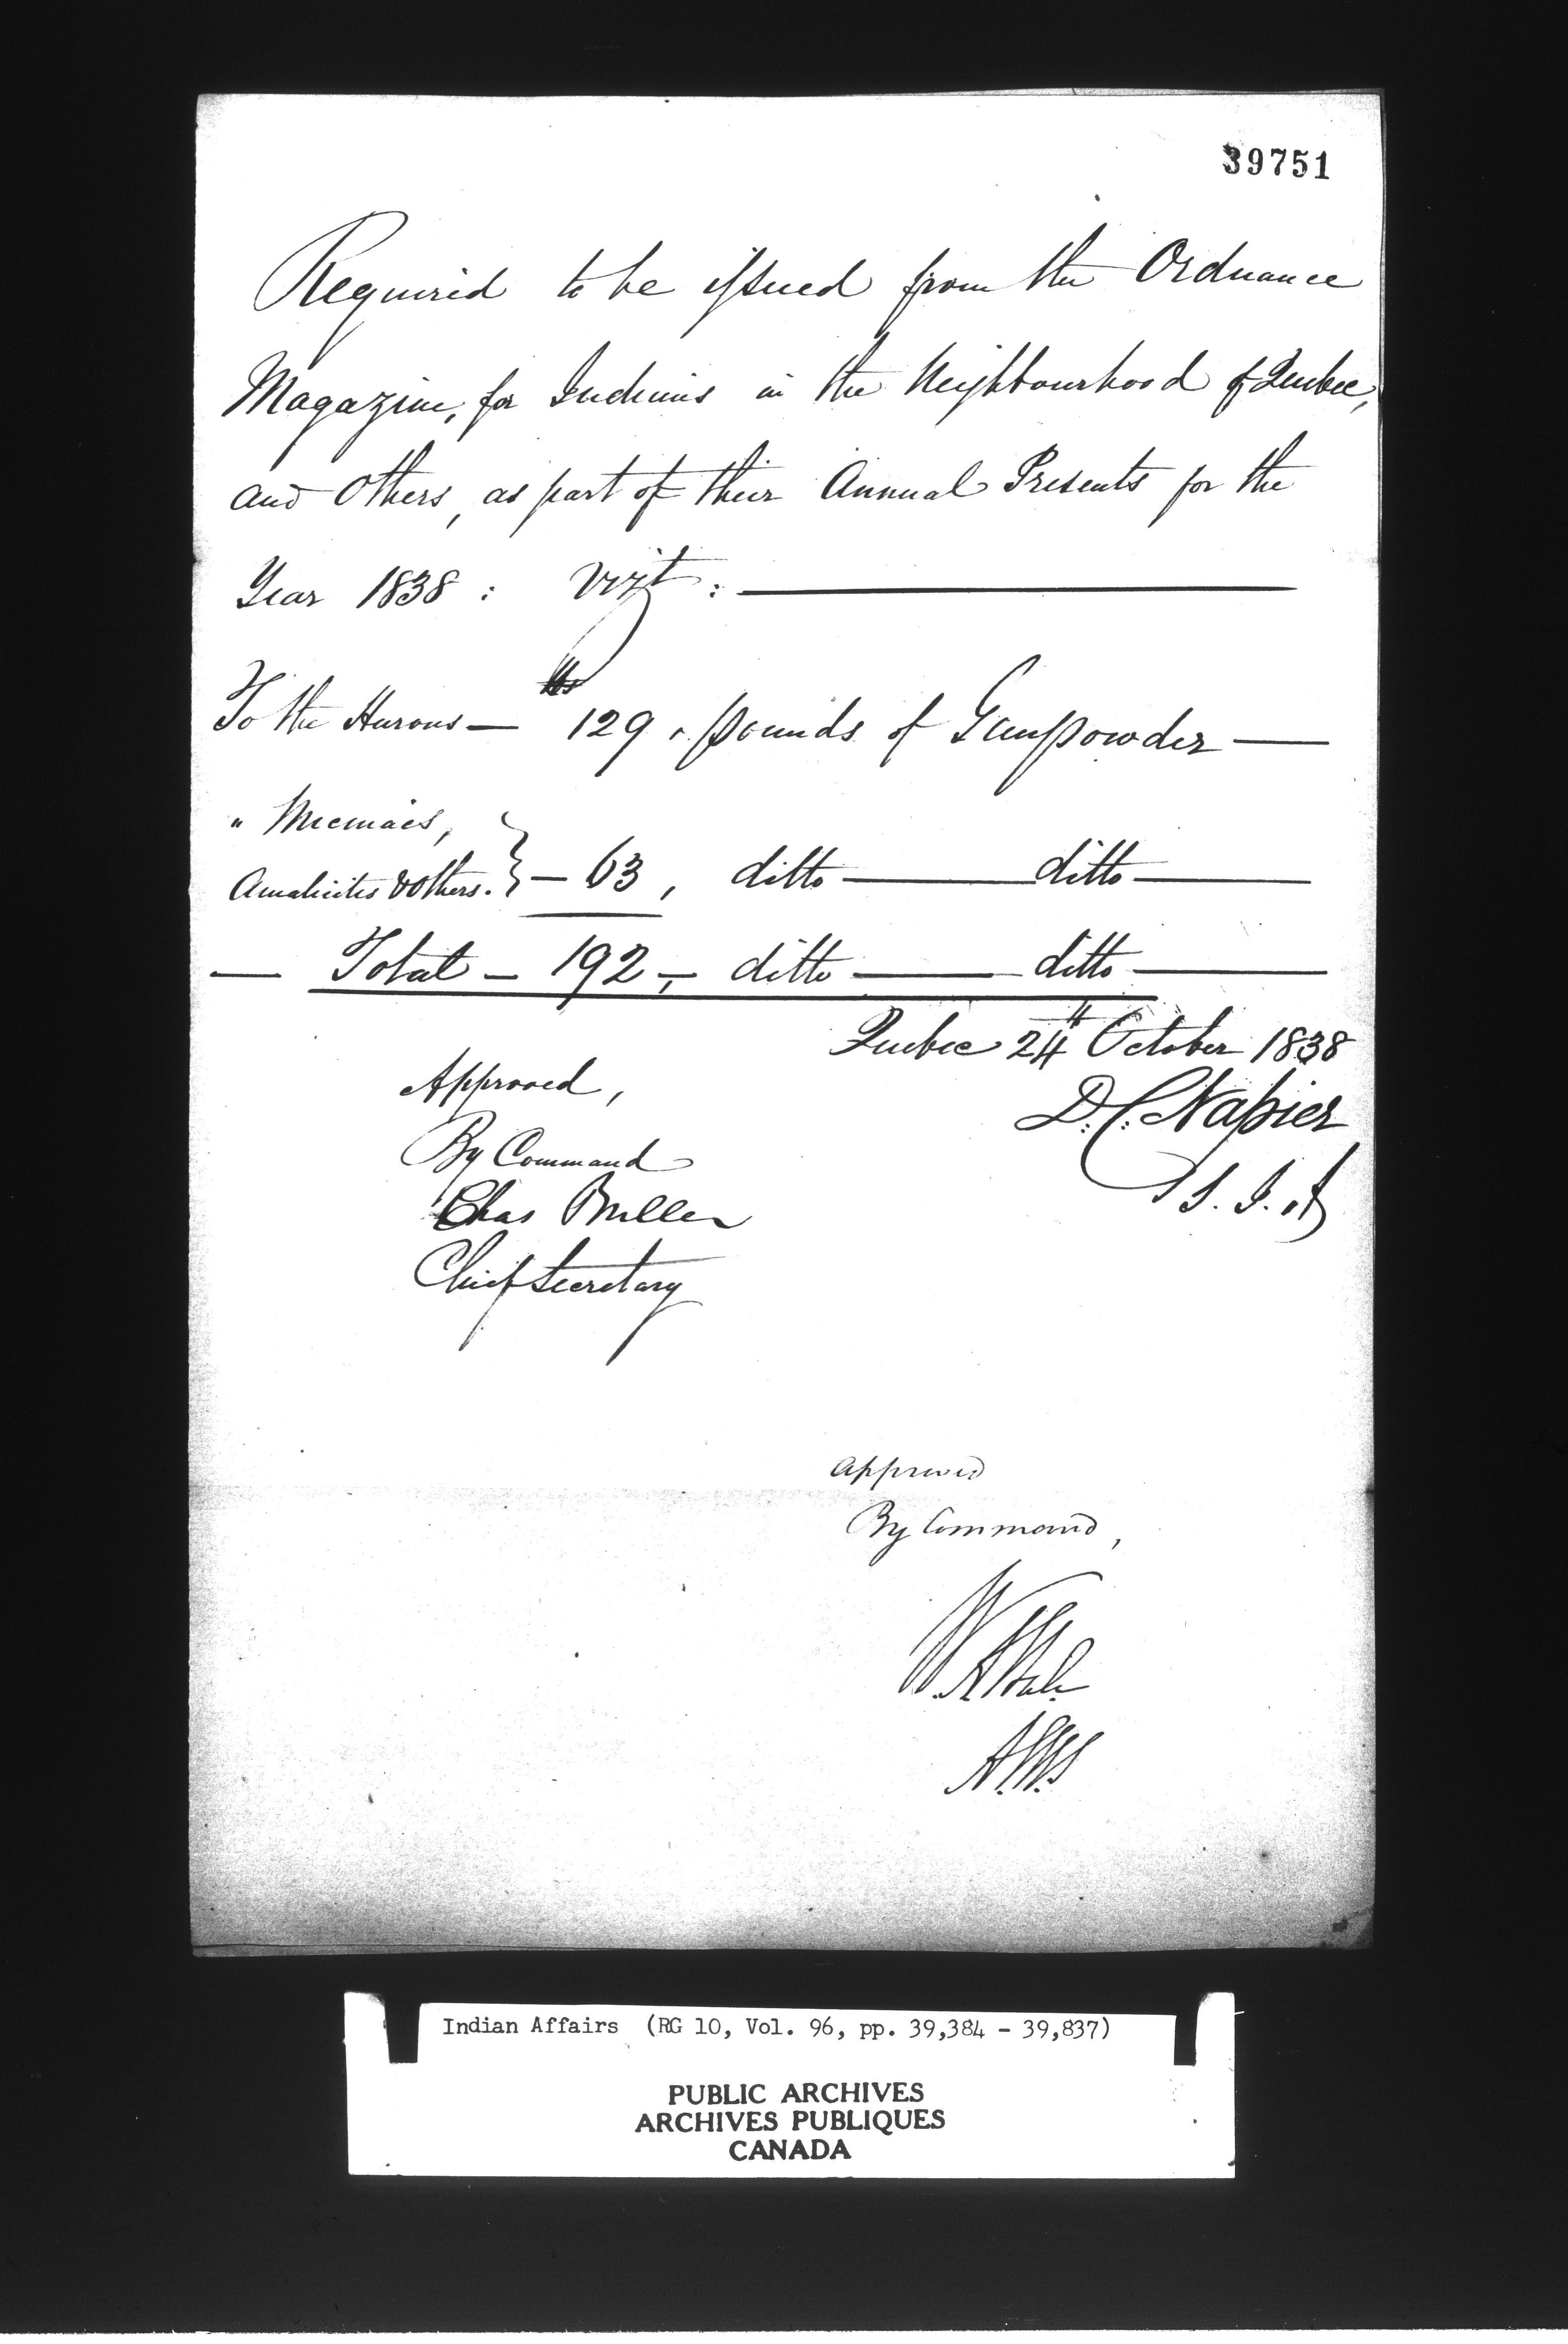 39751
Required to be issued from the Ordnance
Magazine, for Indians in the Neighbourhood of Quebec,
and Others, as part of their Annual Presents for the
Year 1838 : Vizt :
To the Hurons — 129, pounds of Gunpowder —
" Micmacs,
Amalicites & others. } — 63, ditto — ditto —
— Total — 192, — ditto — ditto —
Quebec 24th October 1838
D. C. Napier
S. I. A
Approved,
By Command
Chas Buller
Chief Secretary
Approved
By Command,
Indian Affairs (RG 10, Vol. 96, pp. 39,384 - 39,837)
PUBLIC ARCHIVES
ARCHIVES PUBLIQUES
CANADA